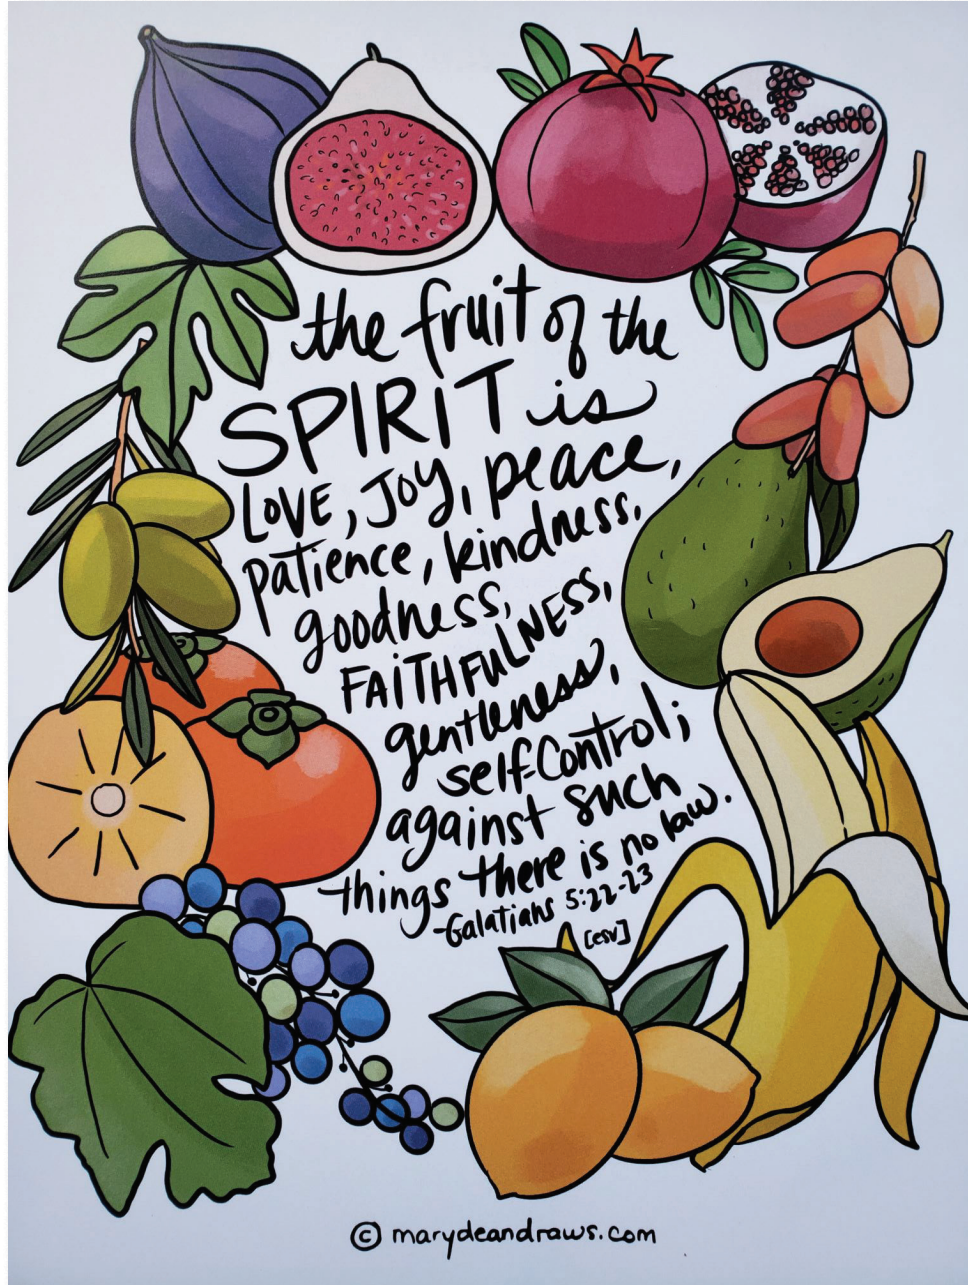 the fruit of the
SPIRIT is
LOVE, JOY, peace,
patience, kindness,
goodness,
FAITHFULNESS,
gentleness,
self-control;
against such
things there is no law.
-Galatians 5:22-23
[esv]
© marydeandraws.com